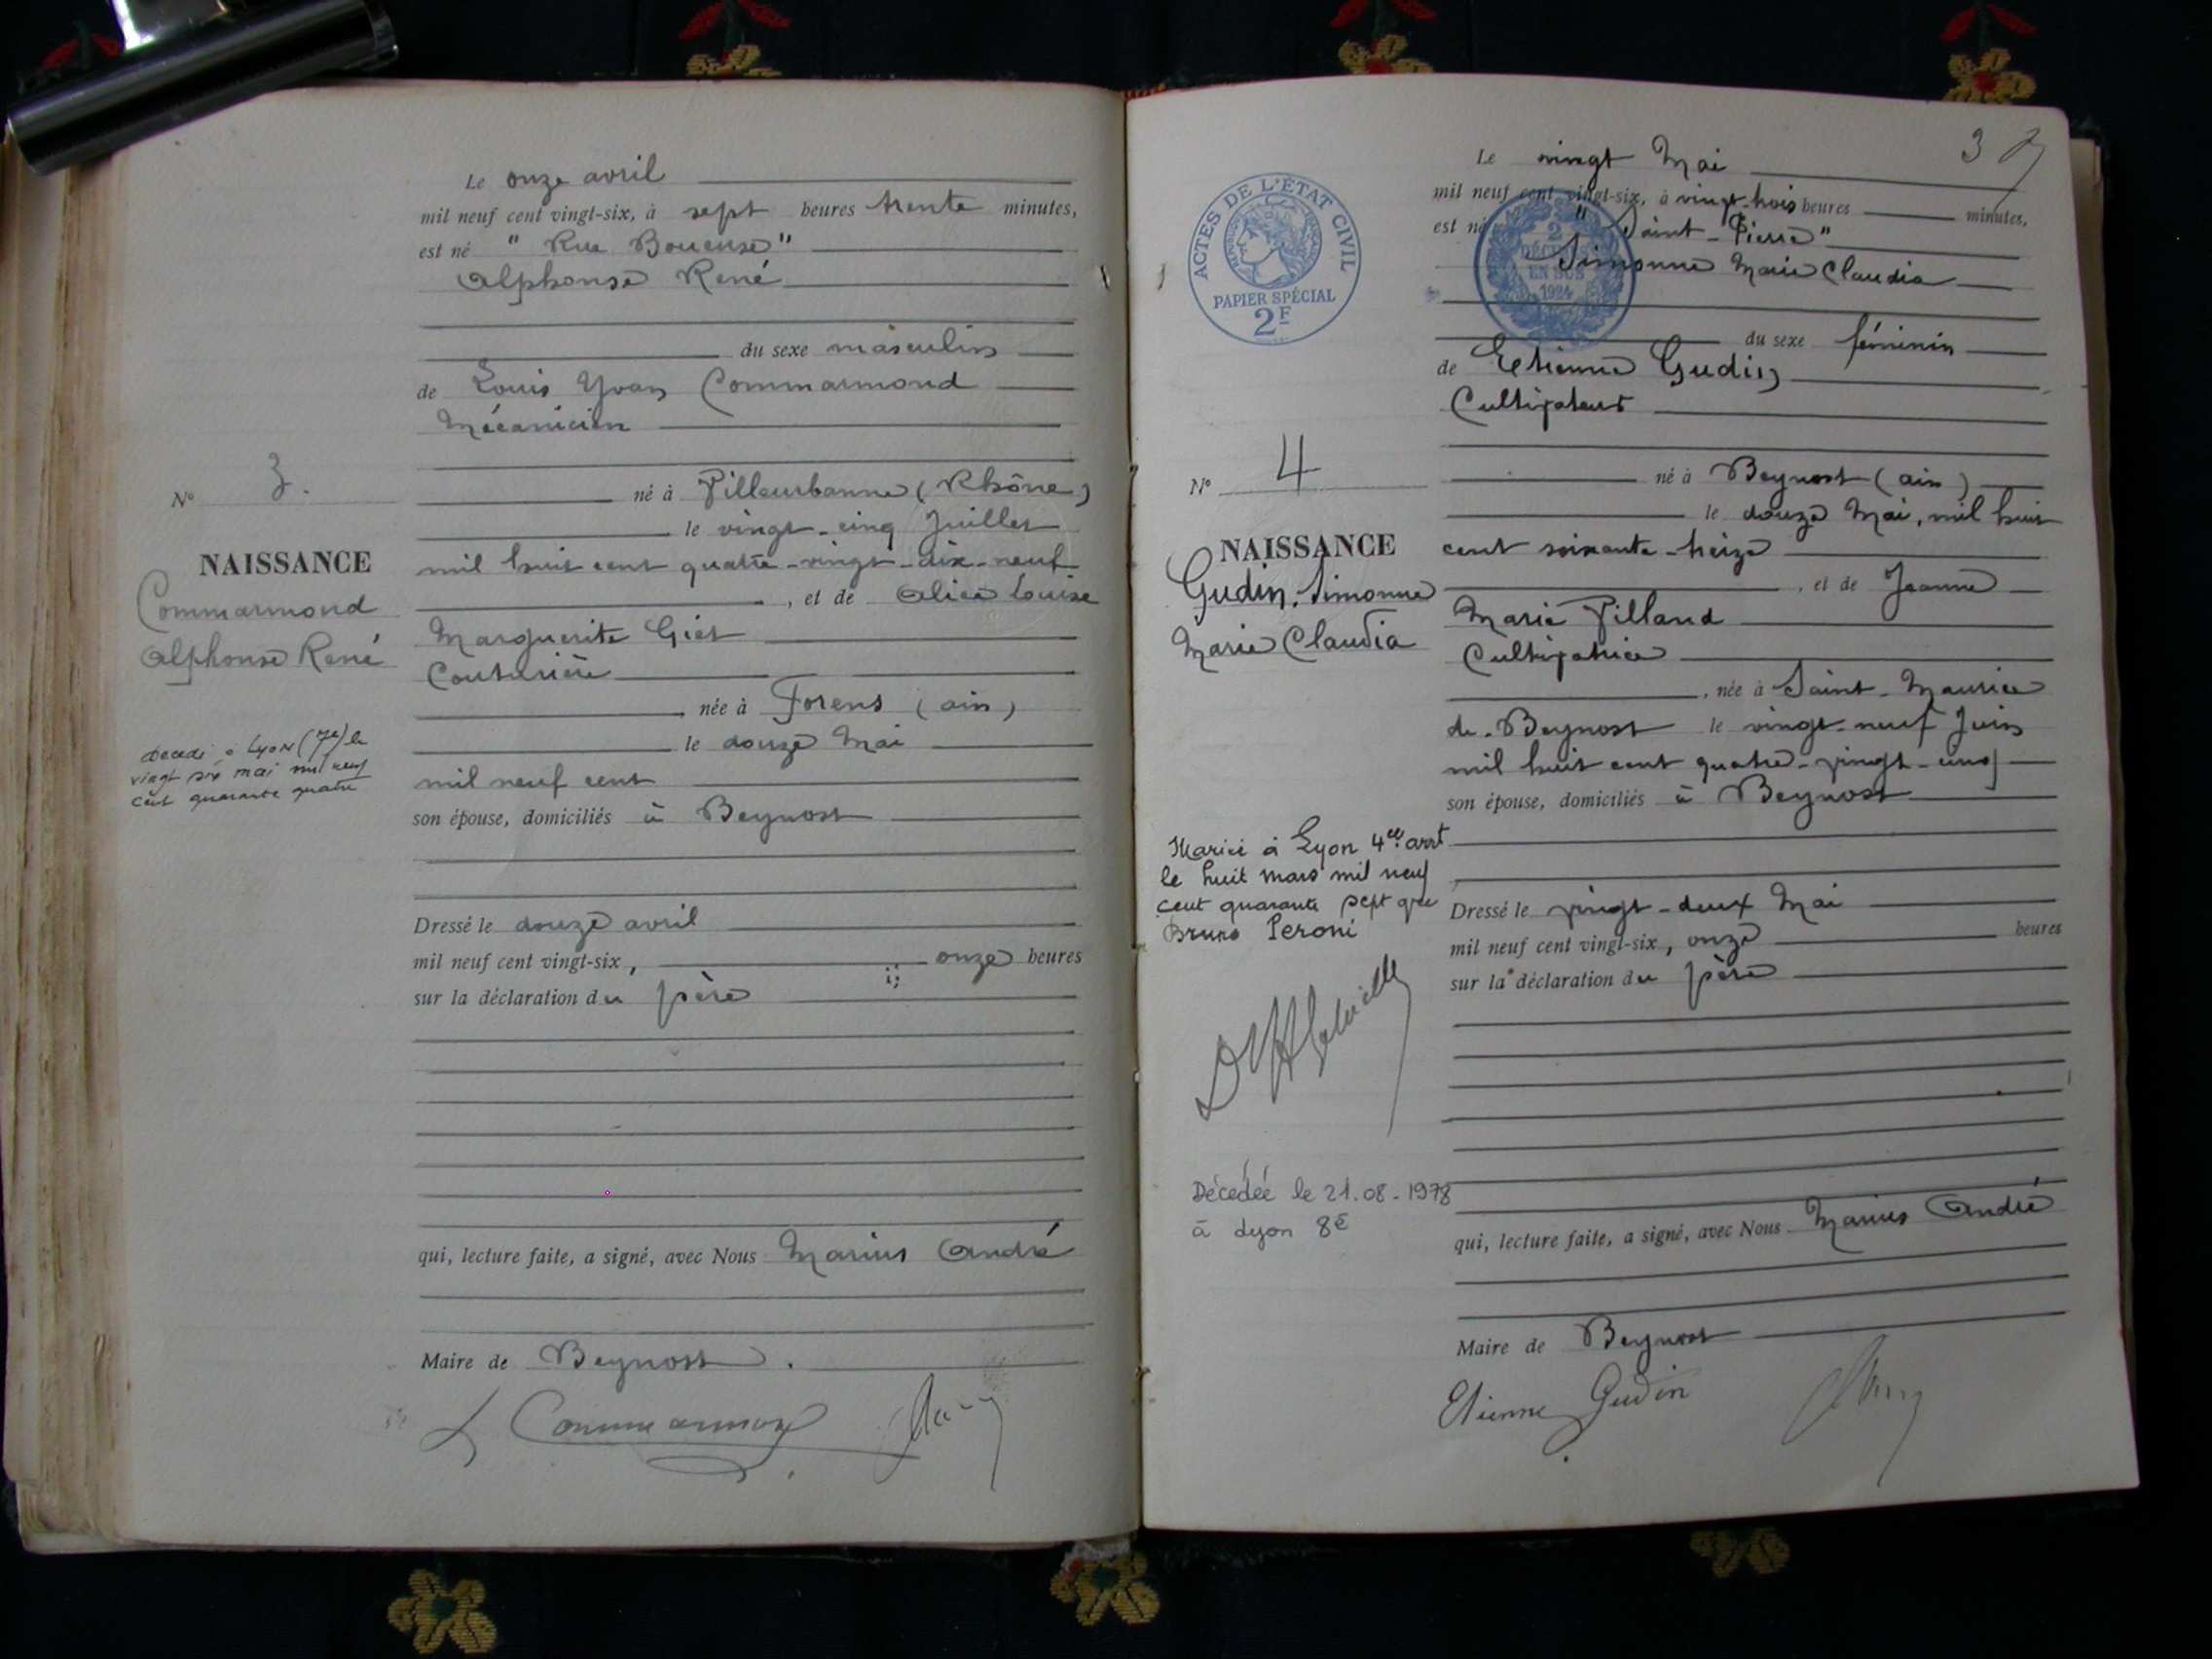 Le onze avril
mil neuf cent vingt-six, à sept heures trente minutes,
est né " Rue Boueuse "
Alphonse René
du sexe masculin
de Louis Yvan Commarmond
Mécanicien
N° 3.
né à Villeurbanne (Rhône)
le vingt-cinq Juillet
mil huit cent quatre-vingt-dix-neuf
NAISSANCE
Commarmond
Alphonse René
, et de Alice Louise
Marguerite
Couturière
, née à Forens (ain)
le douze Mai
mil neuf cent
son épouse, domiciliés à Beynost
Décédé à Lyon (7e) le
vingt six mai mil neuf
cent quarante quatre
Dressé le douze avril
mil neuf cent vingt-six, onze heures
sur la déclaration du père
qui, lecture faite, a signé, avec Nous Marius André
Maire de Beynost.
L Commarmond
3
Le vingt Mai
mil neuf cent vingt-six, à vingt-trois heures minutes,
est né " Saint-Pierre "
Simonne Marie Claudia
ACTES DE L'ÉTAT CIVIL
PAPIER SPÉCIAL
2F
2
DÉCIMES
EN SUS
1924
du sexe féminin
de Etienne Gudin
Cultivateur
N° 4
né à Beynost (ain)
le douze Mai, mil huit
cent soixante-treize
NAISSANCE
Gudin, Simonne
Marie Claudia
, et de Jeanne
Marie Villand
Cultivatrice
, née à Saint-Maurice
de-Beynost le vingt-neuf Juin
mil huit cent quatre-vingt-cinq
son épouse, domiciliés à Beynost
Mariée à Lyon 4e arrt
le huit mars mil neuf
cent quarante sept avec
Bruno Peroni
Dressé le vingt-deux Mai
mil neuf cent vingt-six, onze heures
sur la déclaration du père
Décédée le 21.08.1978
à Lyon 8è
qui, lecture faite, a signé, avec Nous Marius André
Maire de Beynost
Etienne Gudin